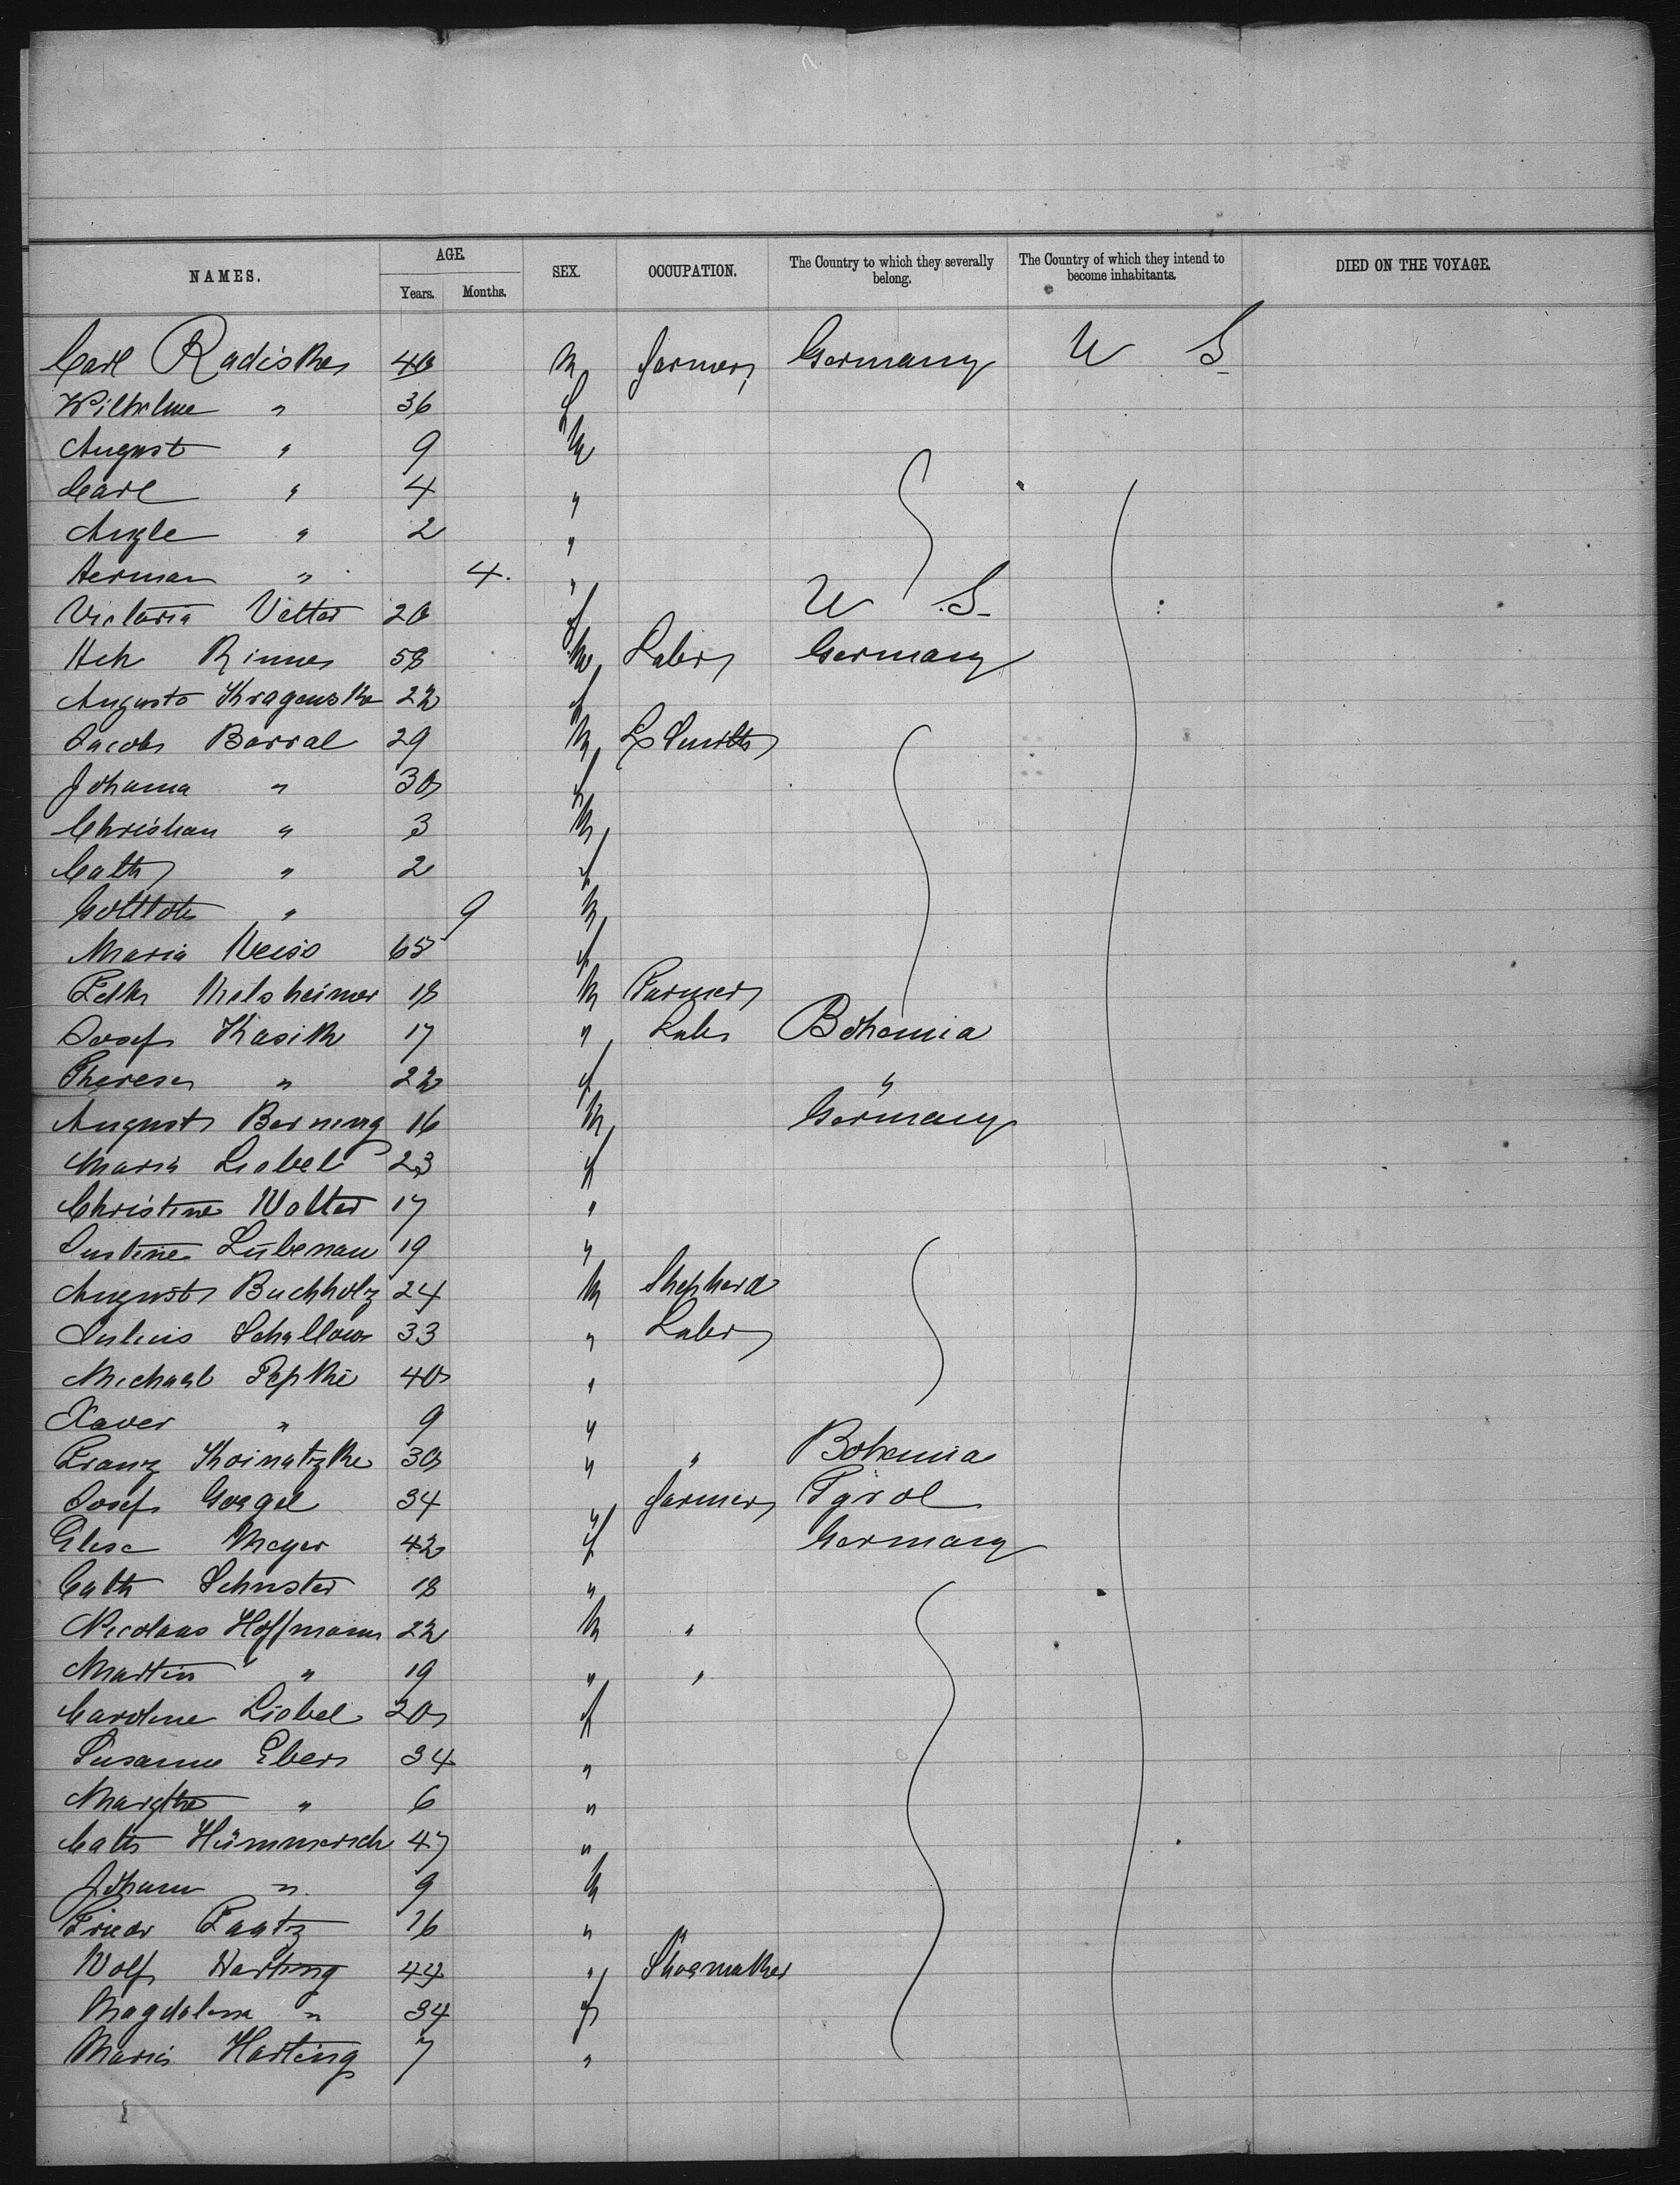 NAMES. AGE. SEX. OCCUPATION. The Country to which they severally belong. The Country of which they intend to become inhabitants. DIED ON THE VOYAGE.
Years. Months.
Carl Radiske 40 M farmer Germany U S
Wilhelme " 36 f
August " 9 M
Carl " 4 "
" 2 "
Herman " 4. "
Victoria Vetter 20 f U S
Hch Rinne 58 M Labr Germany
Auguste 22 f
Jacob Barral 29 M Smith
Johanna " 30 f
Christian " 3 M
Cath " 2 f
Gottlob " 9 M
Maria Weiss 65 f
Melsheimer 18 M Farmer
Josef Kasik 17 " Labr Bohemia
Therese " 22 f "
August Berning 16 M Germany
Maria Liebel 23 f
Christine Wolter 17 "
Justine Lübenau 19 "
August Buchholz 24 M Shepherd
Julius Schallow 33 " Labr
Michael Pepke 40 "
Xaver " 9 "
Franz Koinatzke 30 " " Bohemia
Josef Goegel 34 " farmer Tyrol
Elise Meyer 42 f Germany
Cath Schuster 18 "
Nicolaus Hoffmann 22 M "
Martin " 19 " "
Caroline Liebel 20 f
Susanne Ebers 34 "
Margthe " 6 "
Cath Hümmerich 47 "
Johann " 9 M
Friedr Paatz 16 "
Wolf Harting 44 " Shoemaker
Magdalena " 34 f
Maria Harting 7 "